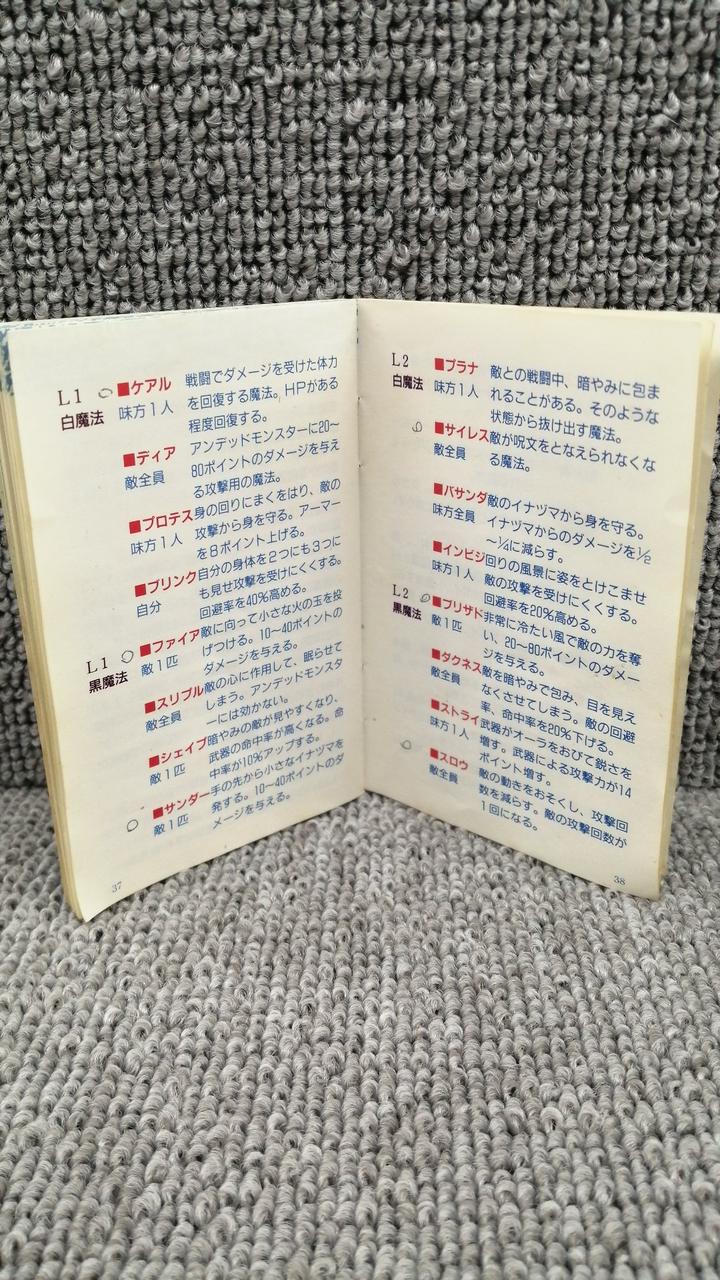 L1
白魔法
■ケアル
味方1人
戦闘でダメージを受けた体力
を回復する魔法。HPがある
程度回復する。
■ディア
敵全員
アンデッドモンスターに20～
80ポイントのダメージを与え
る攻撃用の魔法。
■プロテス
味方1人
身の回りにまくをはり、敵の
攻撃から身を守る。アーマー
を8ポイント上げる。
■ブリンク
自分
自分の身体を2つにも3つに
も見せ攻撃を受けにくくする。
回避率を40%高める。
L1
黒魔法
■ファイア
敵1匹
敵に向って小さな火の玉を投
げつける。10～40ポイントの
ダメージを与える。
■スリプル
敵全員
敵の心に作用して、眠らせて
しまう。アンデッドモンスタ
ーには効かない。
■シェイプ
敵1匹
暗やみの敵が見やすくなり、
武器の命中率が高くなる。命
中率が10%アップする。
■サンダー
敵1匹
手の先から小さなイナヅマを
発する。10～40ポイントのダ
メージを与える。
37
L2
白魔法
■プラナ
味方1人
敵との戦闘中、暗やみに包ま
れることがある。そのような
状態から抜け出す魔法。
■サイレス
敵全員
敵が呪文をとなえられなくな
る魔法。
■バサンダ
味方全員
敵のイナヅマから身を守る。
イナヅマからのダメージを½
～¼に減らす。
■インビジ
味方1人
回りの風景に姿をとけこませ
敵の攻撃を受けにくくする。
回避率を20%高める。
L2
黒魔法
■ブリザド
敵1匹
非常に冷たい風で敵の力を奪
い、20～80ポイントのダメー
ジを与える。
■ダクネス
敵全員
敵を暗やみで包み、目を見え
なくさせてしまう。敵の回避
率、命中率を20%下げる。
■ストライ
味方1人
武器がオーラをおびて鋭さを
増す。武器による攻撃力が14
ポイント増す。
■スロウ
敵全員
敵の動きをおそくし、攻撃回
数を減らす。敵の攻撃回数が
1回になる。
38